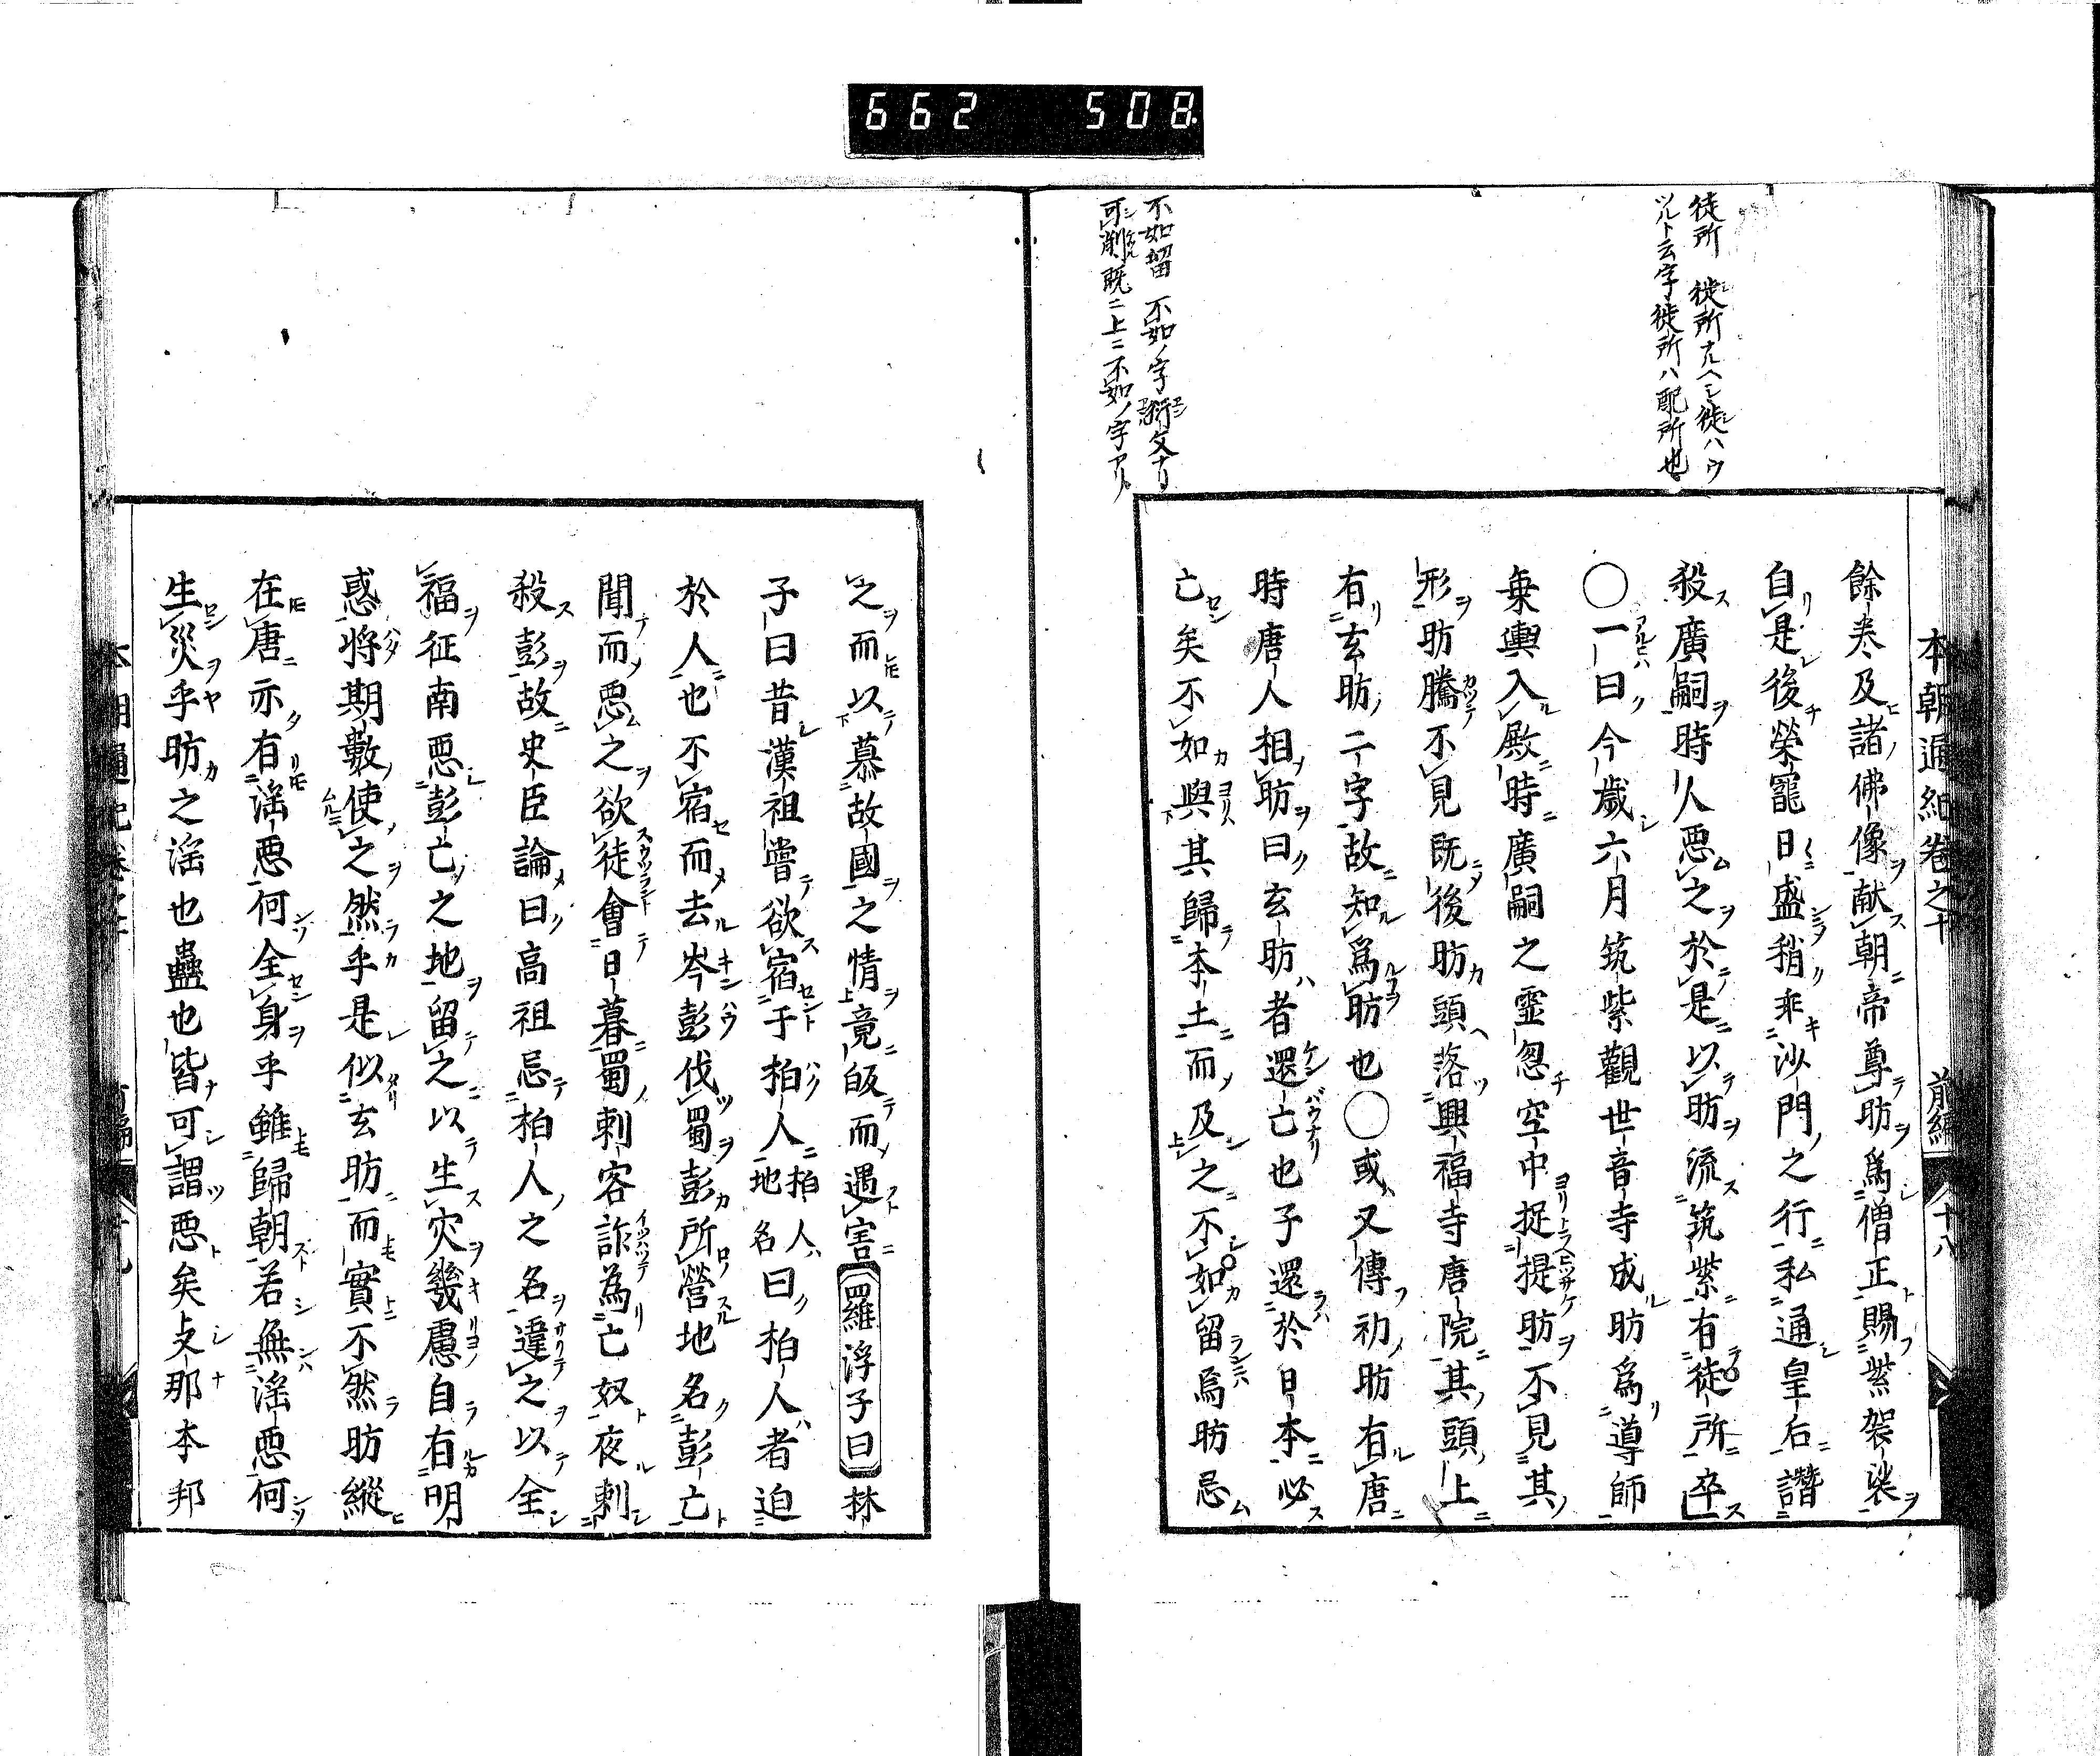 662 508
徒所 徙所ナルヘシ徙ハウ
ツルト云字徙所ハ配所也
不如留 不如ノ字衍文ナリ
可削既ニ上ニ不如ノ字アリ
本朝通紀卷之十 前編 十八
餘卷及諸佛像献朝帝尊昉爲僧正賜紫袈裟
自是後榮寵日盛稍乖沙門之行私通皇后譖
殺廣嗣時人悪之於是以昉流筑紫有徒所卒
〇一曰今歳六月筑紫觀世音寺成昉爲導師
乗輿入殿時廣嗣之靈忽空中捉提昉不見其
形昉騰不見既後昉頭落興福寺唐院其頭上
有玄昉二字故知爲昉也〇或又傳初昉有唐
時唐人相昉曰玄昉者還亡也子還於日本必
亡矣不如與其歸本土而及之不如留焉昉忌
之而以慕故國之情竟皈而遇害羅浮子曰林
子曰昔漢祖嘗欲宿于柏人柏人ハ地名曰柏人者迫
於人也不宿而去岑彭伐蜀彭所營地名彭亡
聞而悪之欲徒會日暮蜀刺客詐為亡奴夜刺
殺彭故史臣論曰高祖忌柏人之名違之以全
福征南悪彭亡之地留之以生災幾慮自有明
惑將期數使之然乎是似玄昉而實不然昉縱
在唐亦有滛悪何全身乎雖歸朝若無滛悪何
生災乎昉之滛也蠱也皆可謂悪矣支那本邦